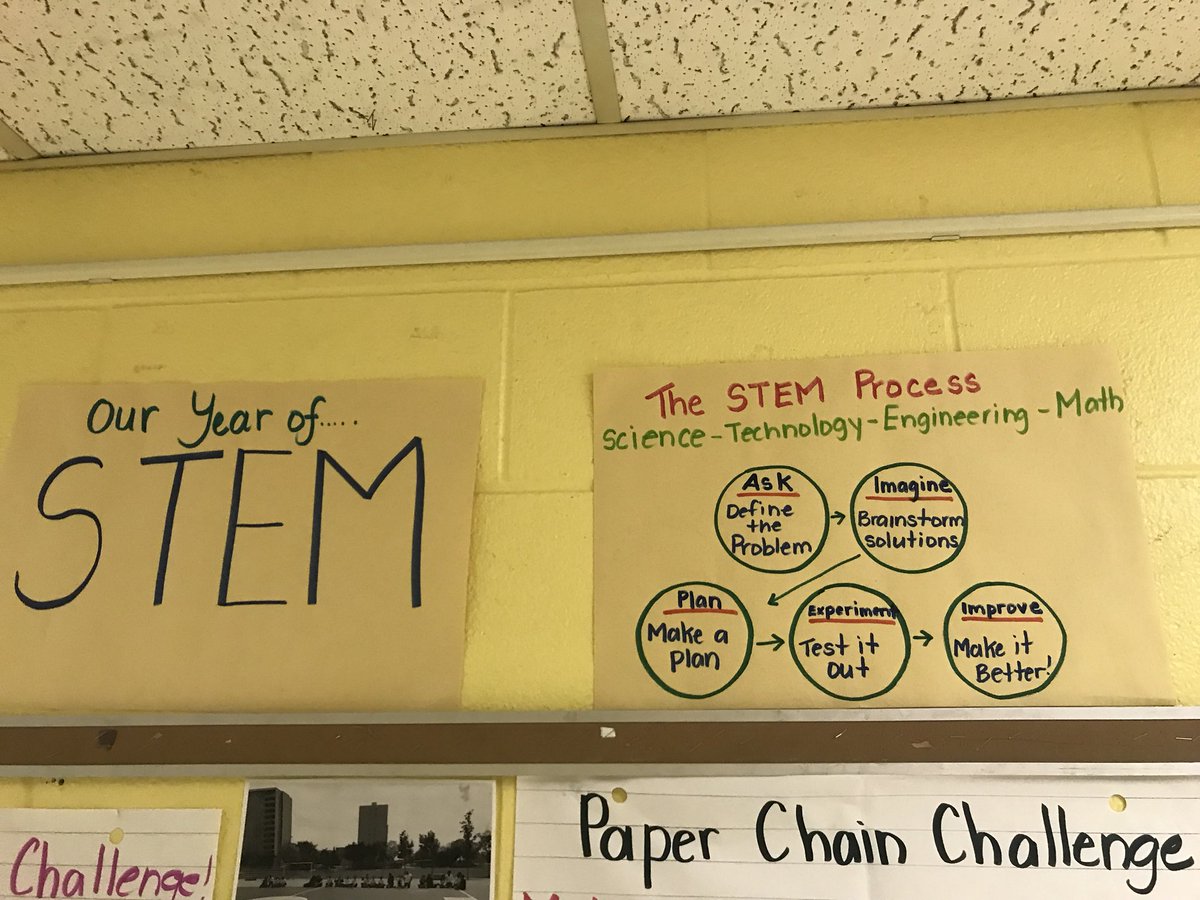 Our Year of.....
STEM
The STEM Process
Science-Technology-Engineering-Math
Ask
Define
the
Problem
Imagine
Brainstorm
solutions
Plan
Make a
plan
Experiment
Test it
out
Improve
Make it
Better!
Challenge!
Paper Chain Challenge